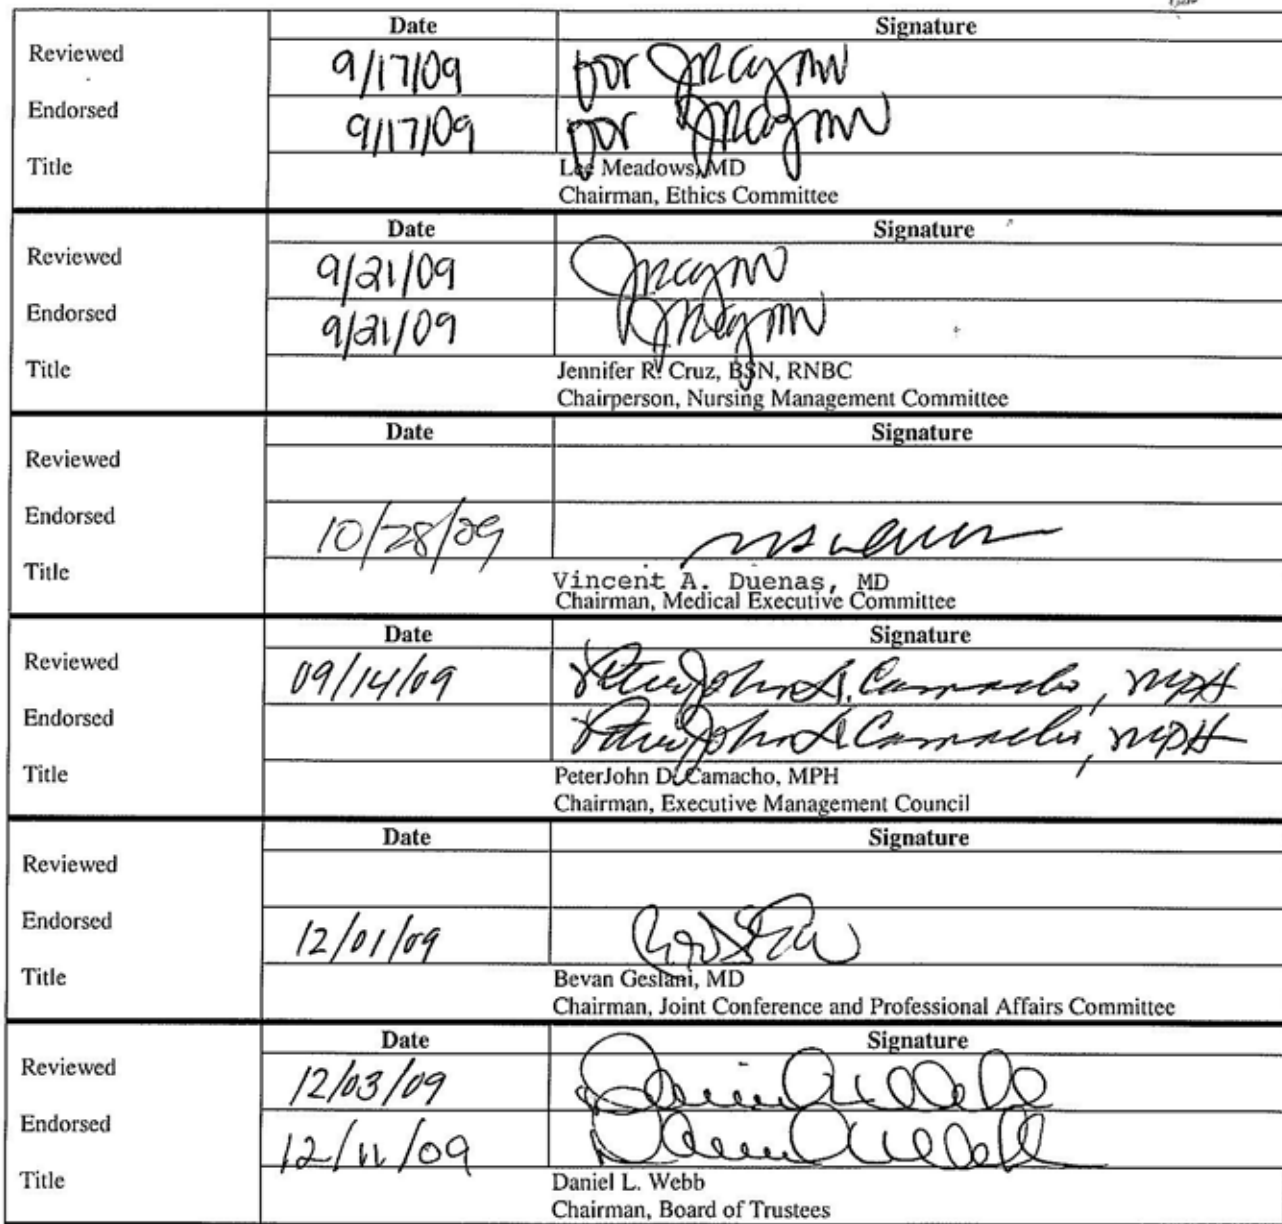 Date Signature
Reviewed 9/17/09 for
Endorsed 9/17/09 for
Title Lee Meadows, MD
Chairman, Ethics Committee
Date Signature
Reviewed 9/21/09
Endorsed 9/21/09
Title Jennifer R. Cruz, BSN, RNBC
Chairperson, Nursing Management Committee
Date Signature
Reviewed
Endorsed 10/28/09
Title Vincent A. Duenas, MD
Chairman, Medical Executive Committee
Date Signature
Reviewed 09/14/09 PeterJohn D. Camacho, MPH
Endorsed PeterJohn D. Camacho, MPH
Title PeterJohn D. Camacho, MPH
Chairman, Executive Management Council
Date Signature
Reviewed
Endorsed 12/01/09
Title Bevan Geslani, MD
Chairman, Joint Conference and Professional Affairs Committee
Date Signature
Reviewed 12/03/09
Endorsed 12/11/09
Title Daniel L. Webb
Chairman, Board of Trustees